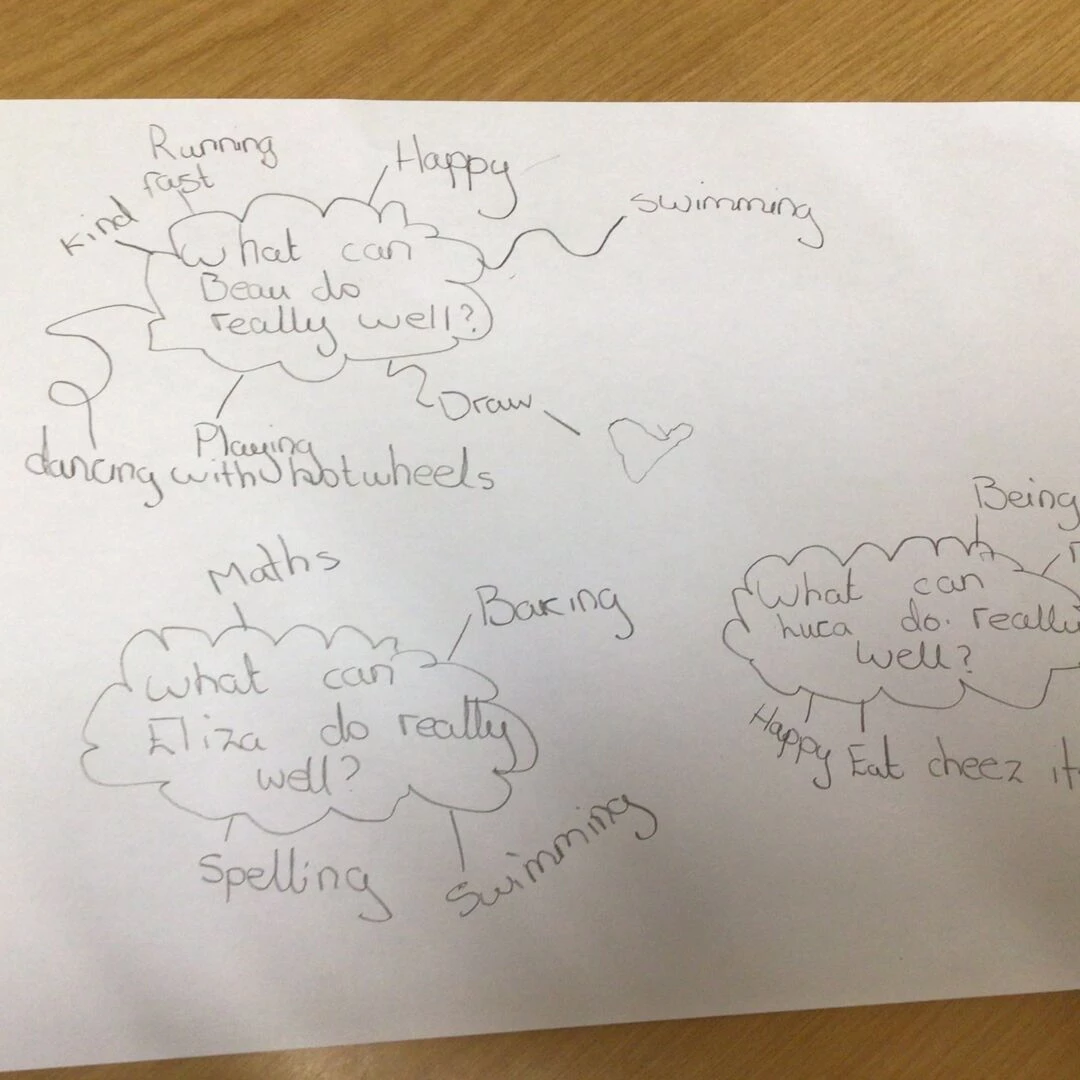 Running
fast
Happy
Kind
swimming
What can
Beau do
really well?
Draw
Playing
dancing with hotwheels
Maths
Baking
What can
Eliza do really
well?
Spelling
Swimming
Being
What can
huca do. really
well?
Happy
Eat cheez it